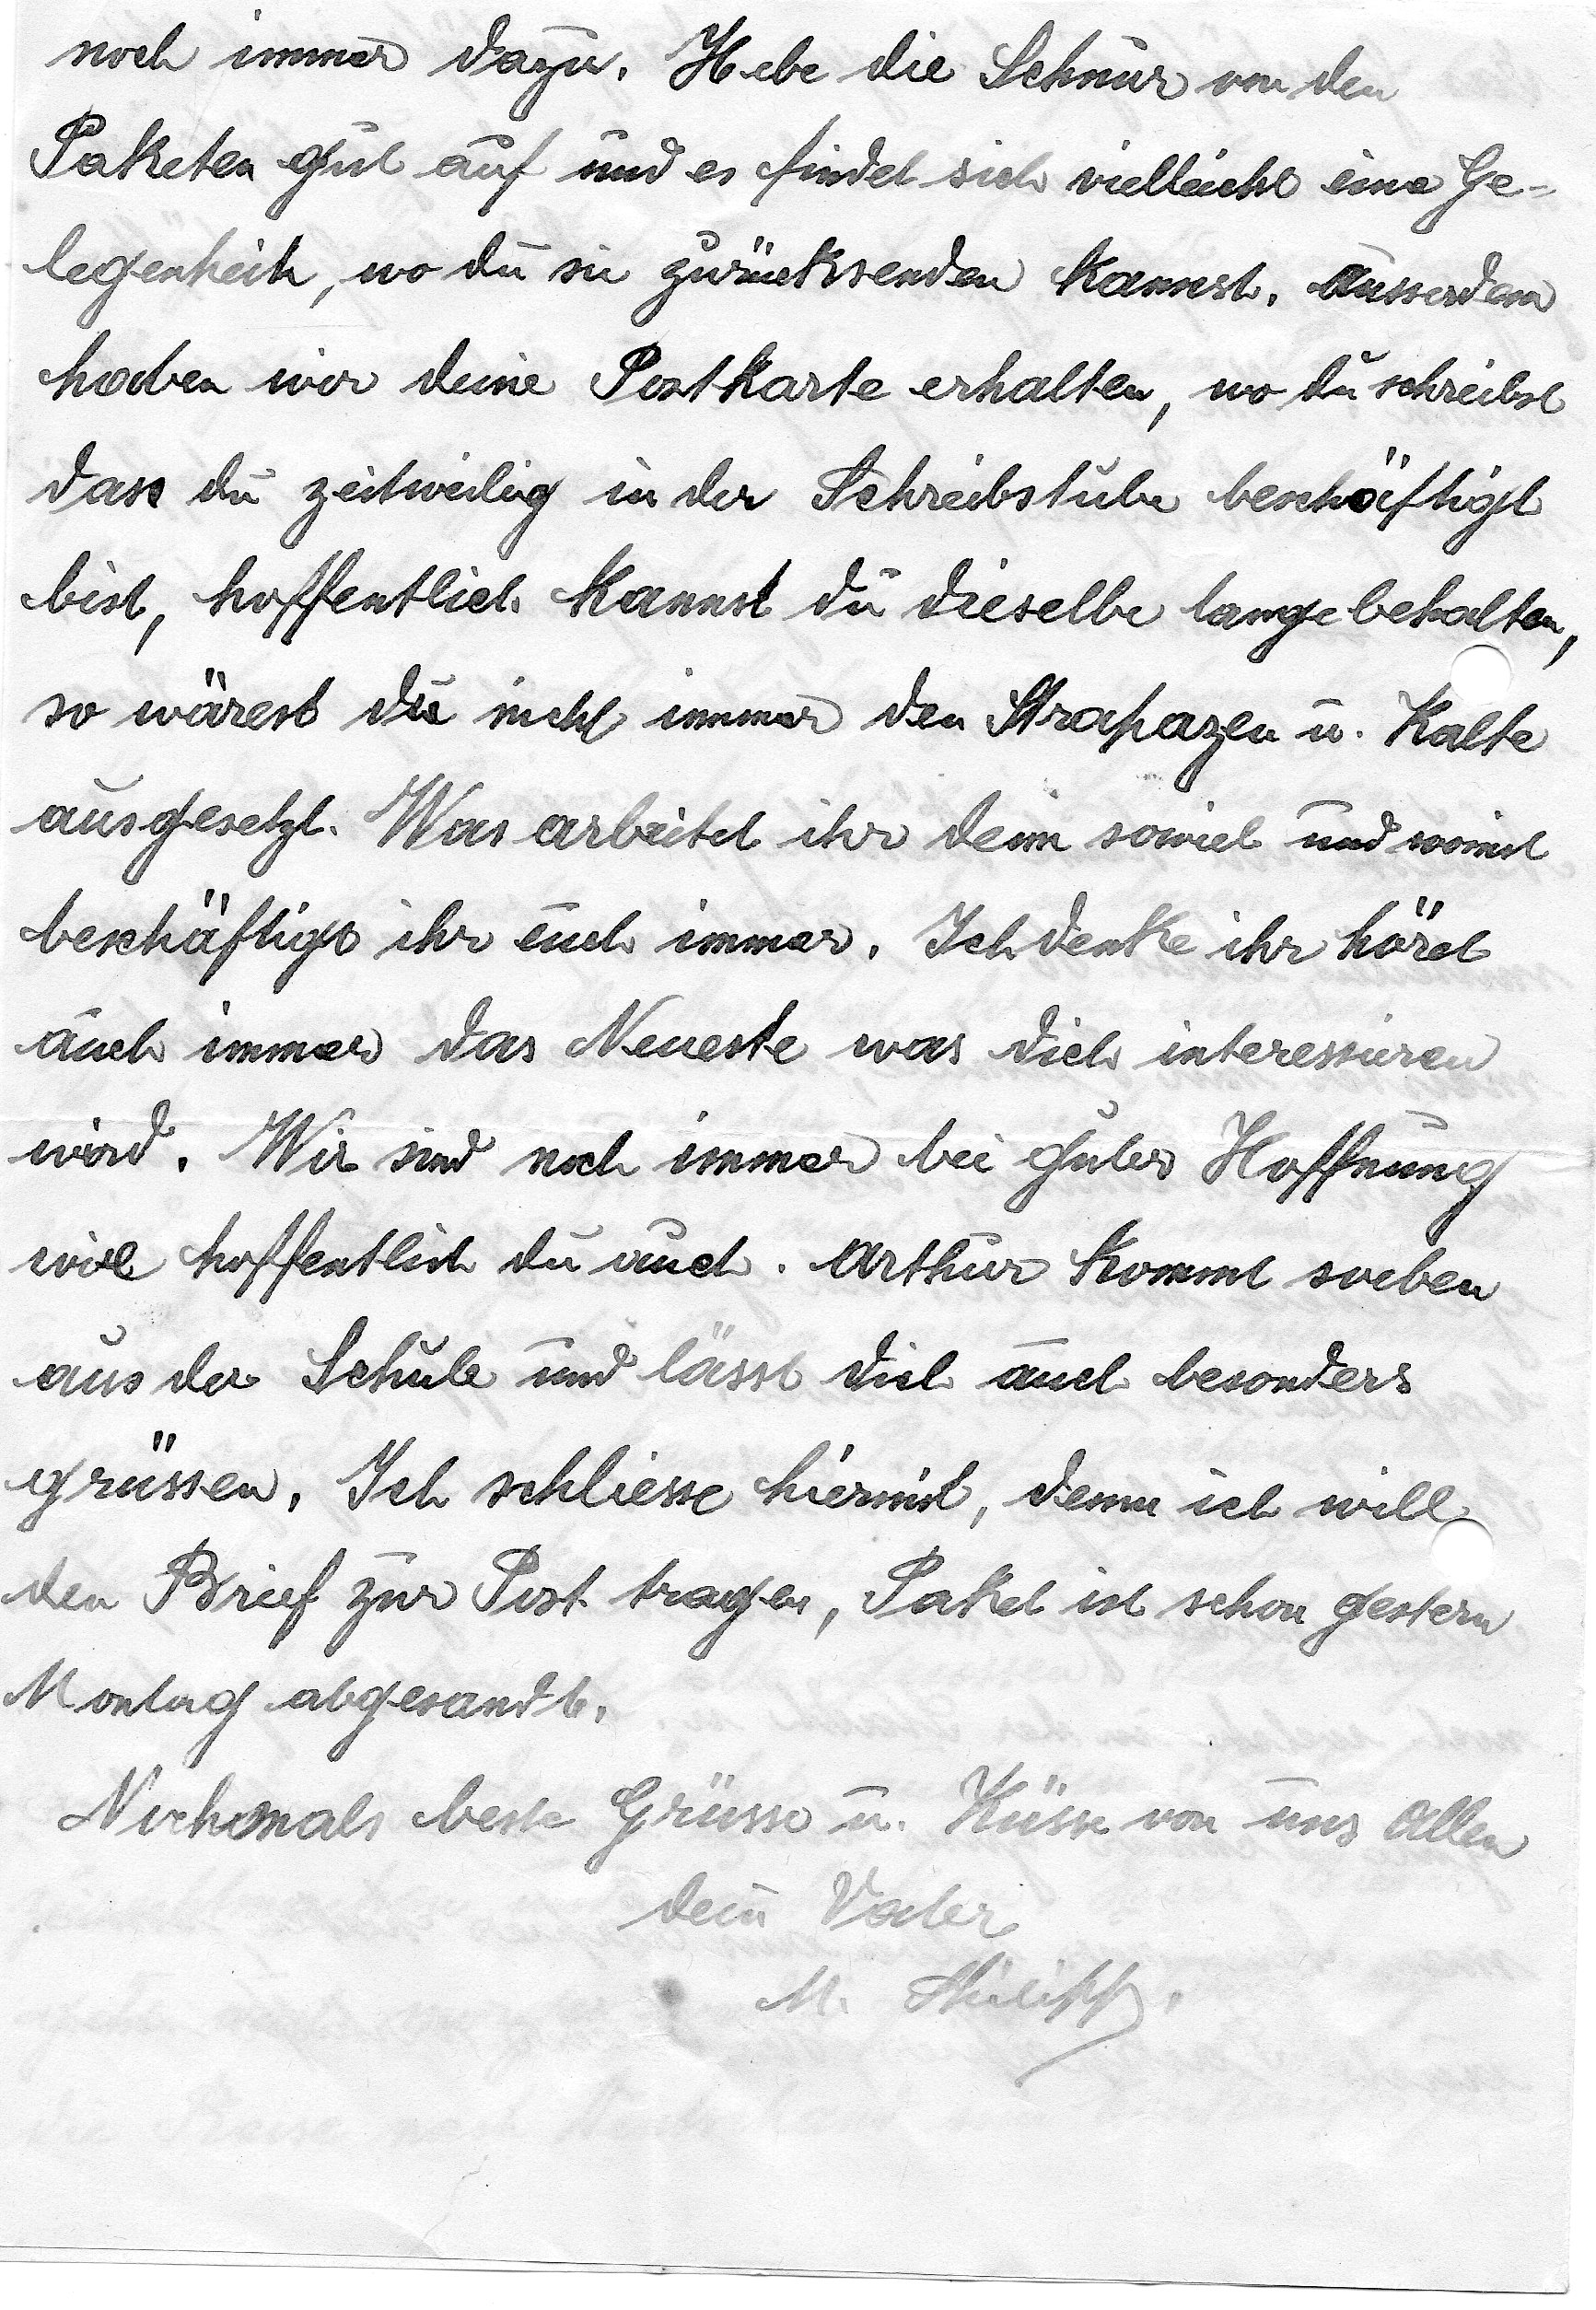 noch immer dazu. Hebe die Schnur von den
Paketen gut auf und es findet sich vielleicht eine Ge-
legenheit, wo du sie zurücksenden kannst. Ausserdem
haben wir deine Postkarte erhalten, wo du schreibst
dass du zeitweilig in der Schreibstube beschäftigt
bist, hoffentlich kannst du dieselbe lange behalten,
so wärest du nicht immer den Strapazen u. Kälte
ausgesetzt. Was arbeitet ihr denn soviel und womit
beschäftigt ihr euch immer. Ich denke ihr höret
auch immer das Neueste was dich interessieren
wird. Wir sind noch immer bei guter Hoffnung
wie hoffentlich du auch. Arthur kommt soeben
aus der Schule und lässt dich auch besonders
grüssen. Ich schliesse hiermit, denn ich will
den Brief zur Post tragen, Paket ist schon gestern
Montag abgesandt.
Nochmals beste Grüsse u. Küsse von uns Allen
dein Vater
M.